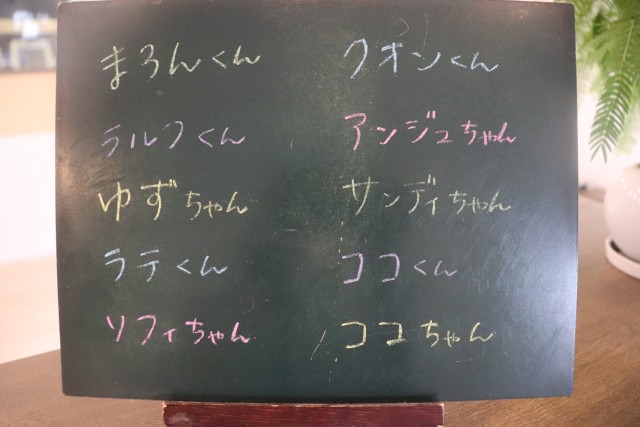 まろんくん
ラルフくん
ゆずちゃん
ラテくん
ソフィちゃん
クオンくん
アンジュちゃん
サンディちゃん
ココくん
ココちゃん